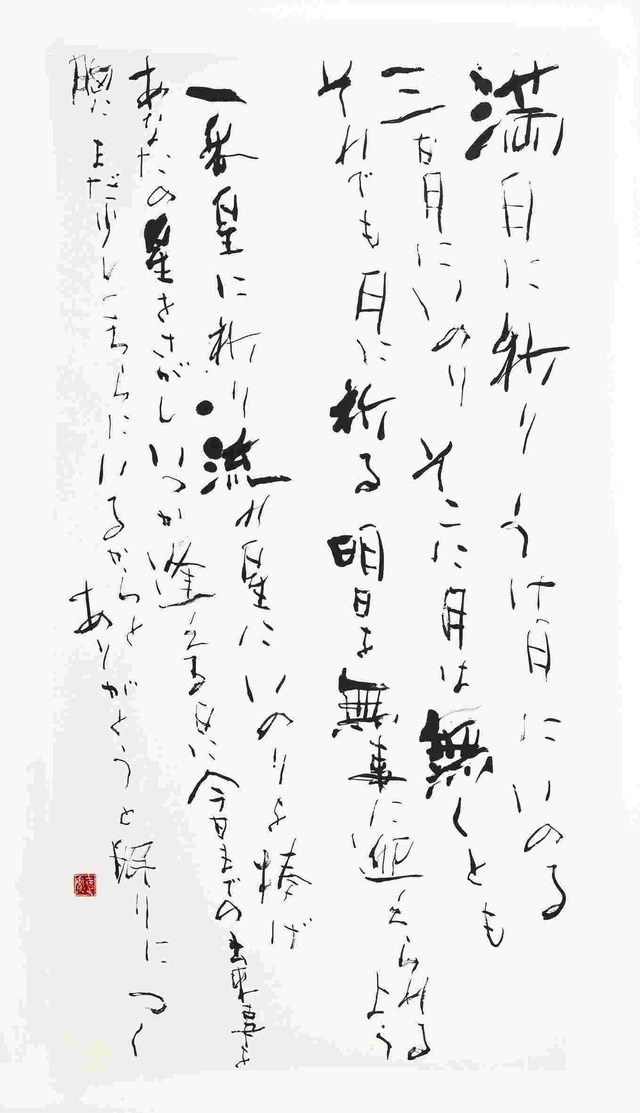 満月に祈り うけ月にいのる
三か月にいのり そこに月は無くとも
それでも月に祈る 明日を無事に迎えられるよう
一番星に祈り 流れ星にいのりを捧げ
あなたの星をさがし いつか逢える日に 今日までの出来事を
胸に まだ少しこちらにいるからと
ありがとうと眠りにつく